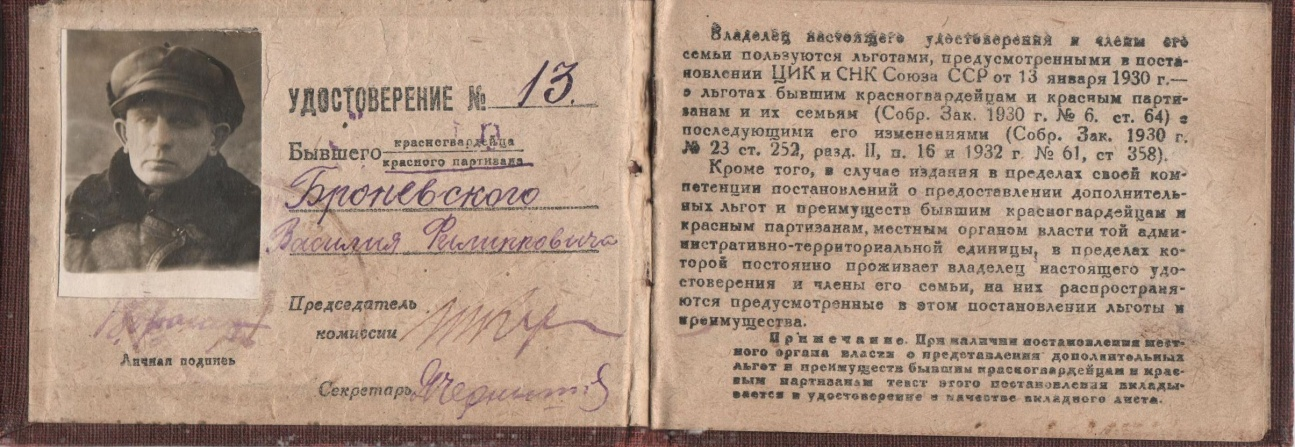 УДОСТОВЕРЕНИЕ № 13.
Бывшего красногвардейца
красного партизана
Броневского
Василия Филипповича
Председатель
комиссии
Секретарь
Личная подпись
Владелец настоящего удостоверения и члены его
семьи пользуются льготами, предусмотренными в поста-
новлении ЦИК и СНК Союза ССР от 13 января 1930 г.—
о льготах бывшим красногвардейцам и красным парти-
занам и их семьям (Собр. Зак. 1930 г. № 6. ст. 64) с
последующими его изменениями (Собр. Зак. 1930 г.
№ 23 ст. 252, разд. II, п. 16 и 1932 г. № 61, ст 358).
Кроме того, в случае издания в пределах своей ком-
петенции постановлений о предоставлении дополнитель-
ных льгот и преимуществ бывшим красногвардейцам и
красным партизанам, местным органом власти той адми-
нистративно-территориальной единицы, в пределах ко-
торой постоянно проживает владелец настоящего удо-
стоверения и члены его семьи, на них распространя-
ются предусмотренные в этом постановлении льготы и
преимущества.
Примечание. При наличии постановления мест-
ного органа власти о представления дополнительных
льгот и преимуществ бывшим красногвардейцам и крас-
ным партизанам текст этого постановления вклады-
вается в удостоверение в качестве вкладного листа.